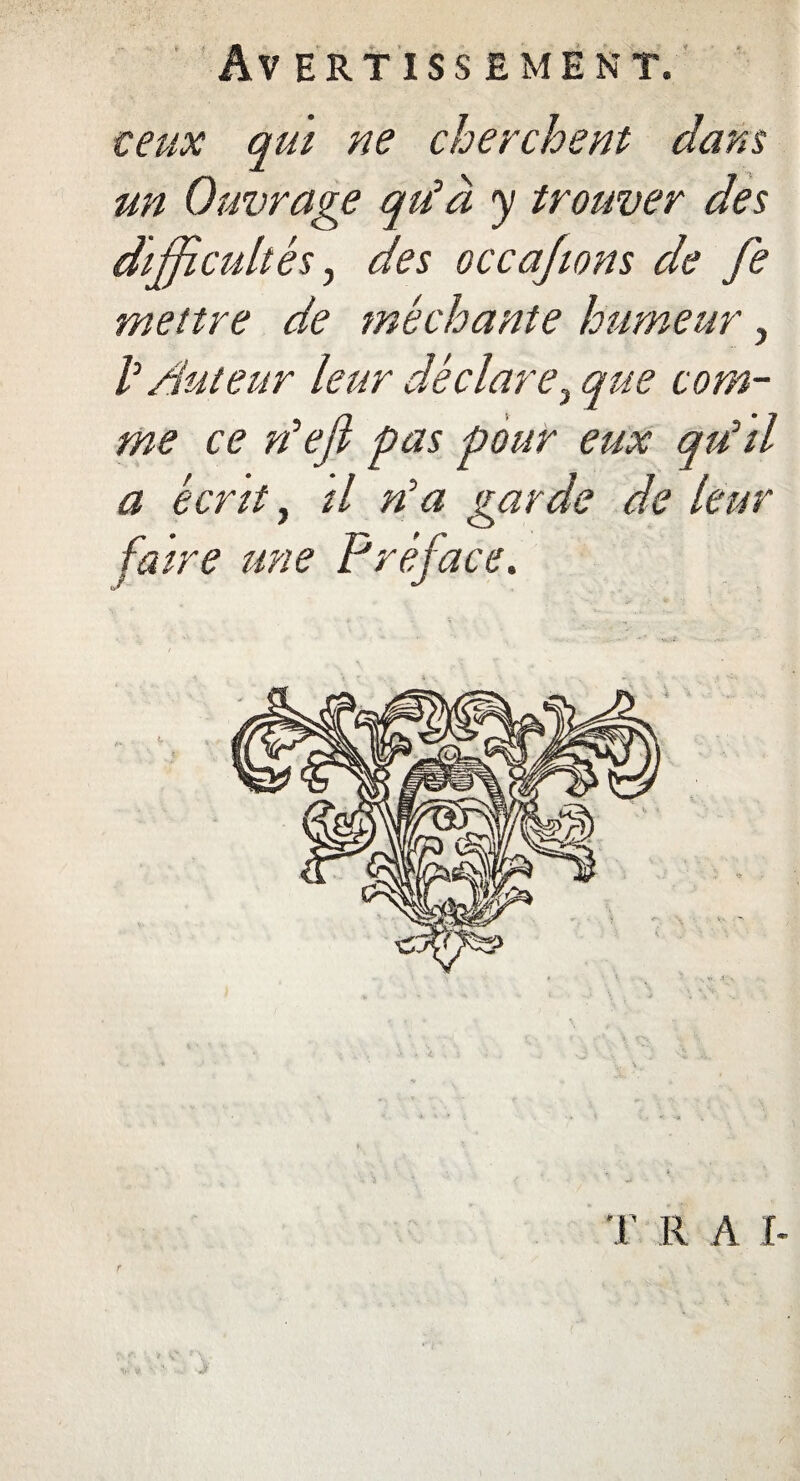 AVERTISSEMENT.
ceux qui ne cherchent dans
un Ouvrage qu'à y trouver des
difficultés, des occaſions de ſe
mettre de méchante humeur,
l'Auteur leur déclare, que com-
me ce n'eſt pas pour eux qu'il
a écrit, il n'a garde de leur
faire une Préface.
TRAI-